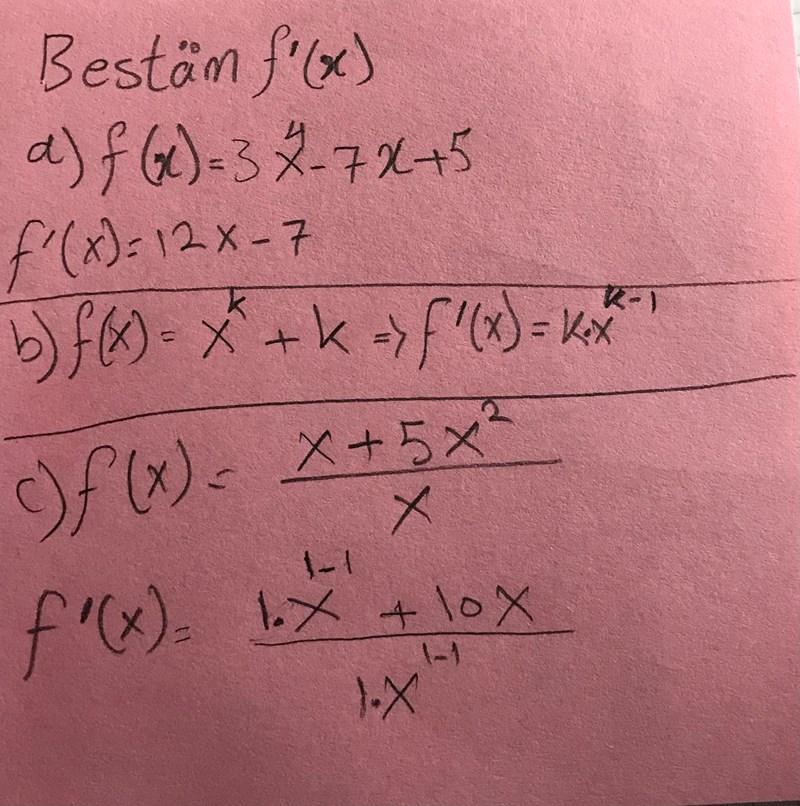 Bestäm f'(x)
a) f(x) = 3x⁴ - 7x + 5
f'(x) = 12x - 7
b) f(x) = xᵏ + k ⇒ f'(x) = k·xᵏ⁻¹
c) f(x) = (x + 5x²)/x
f'(x) = (1·x¹⁻¹ + 10x)/(1·x¹⁻¹)